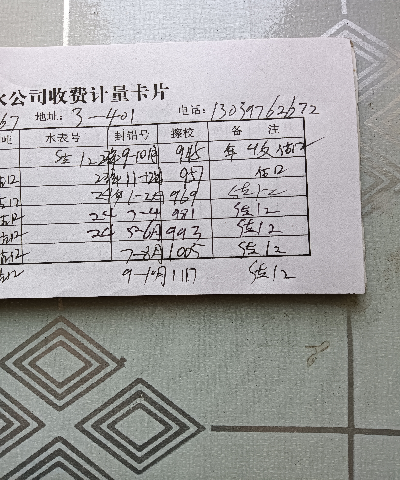 水公司收费计量卡片
67 地址: 3-401 电话: 13039762672
吨 水表号 封铅号 擦校 备 注
22年9-10月 945
23年11-12月 957 估12
24年1-2月 969 估12
估12 24 3-4 981 估12
估12 24 5-6月 993 估12
估12 7-8月 1005 估12
估12 9-10月 1117 估12